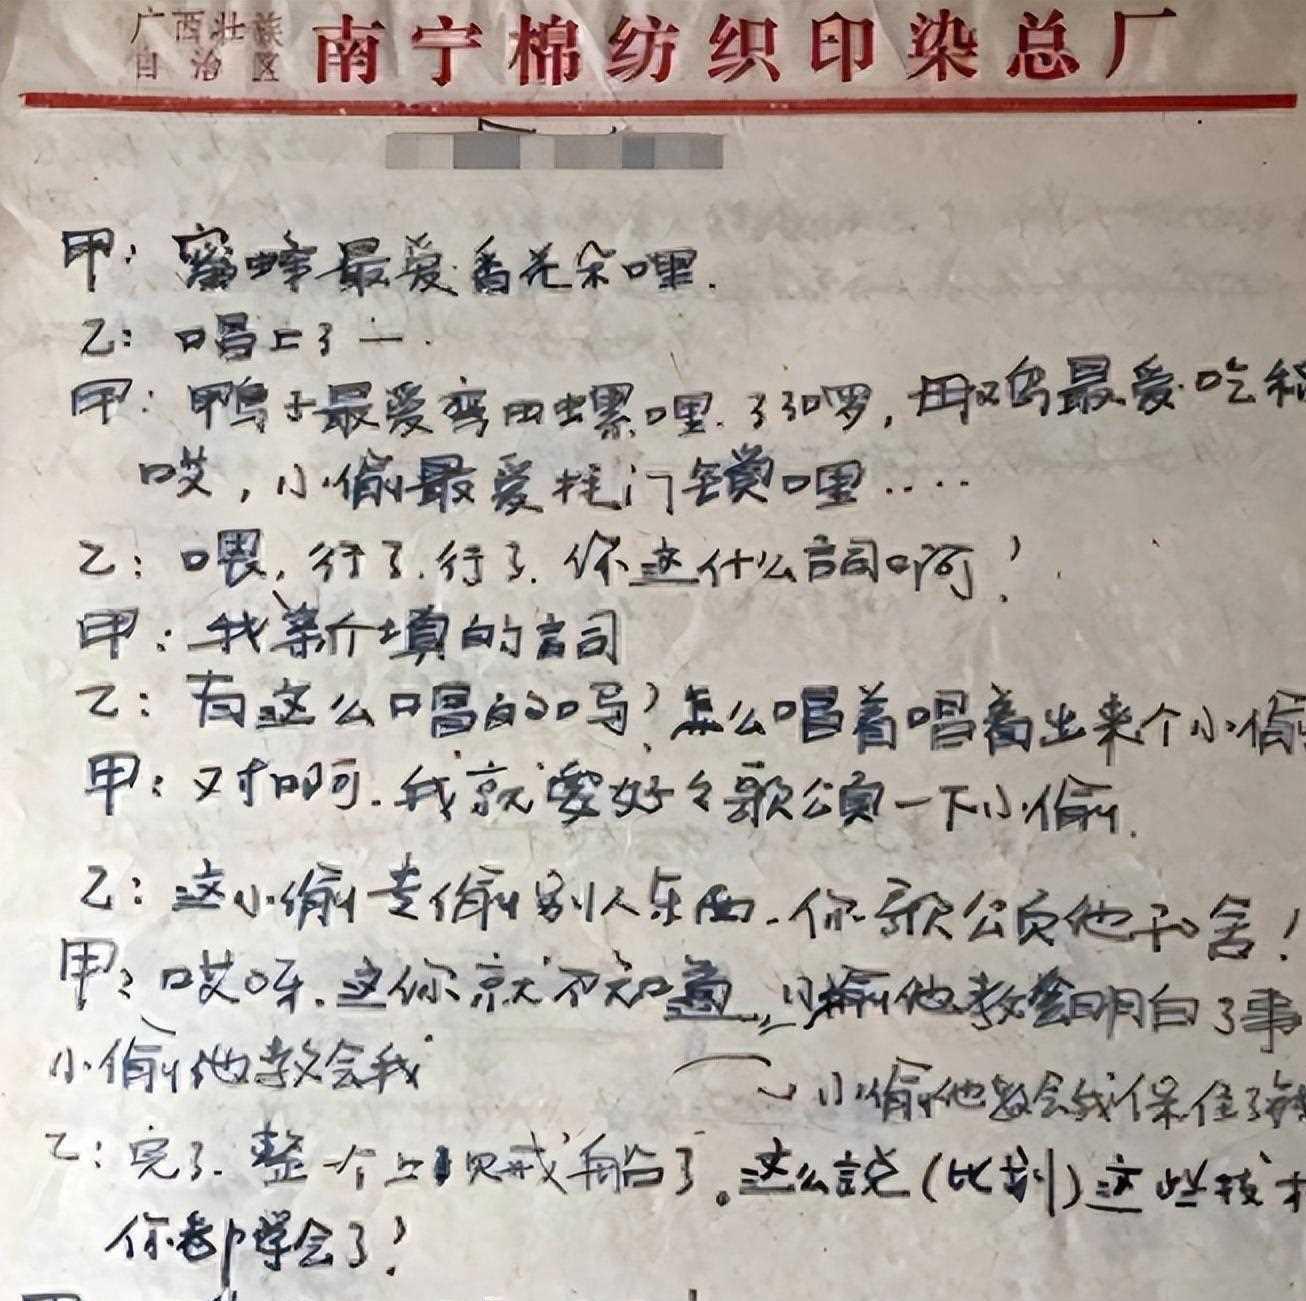 广西壮族
自治区
南宁棉纺织印染总厂
甲：蜜蜂最爱香花朵哩.
乙：唱上了一.
甲：鸭子最爱弯田螺哩.了了啰，母鸡最爱吃
哎，小偷最爱 门锁哩....
乙：喂,行了.行了.你这什么词啊？
甲：我亲个填的词
乙：有这么唱的吗？怎么唱着唱着出来个小偷
甲：对啊.我就要好々歌颂一下小偷.
乙：这小偷专偷别人东西.你歌颂他干舍！
甲：哎呀.这你就不知道 小偷他教会明白了事
小偷他教会我
小偷他教会我保住了
乙：完了.整个上贼船了。这么说(比划)这些技术
你都学会了？